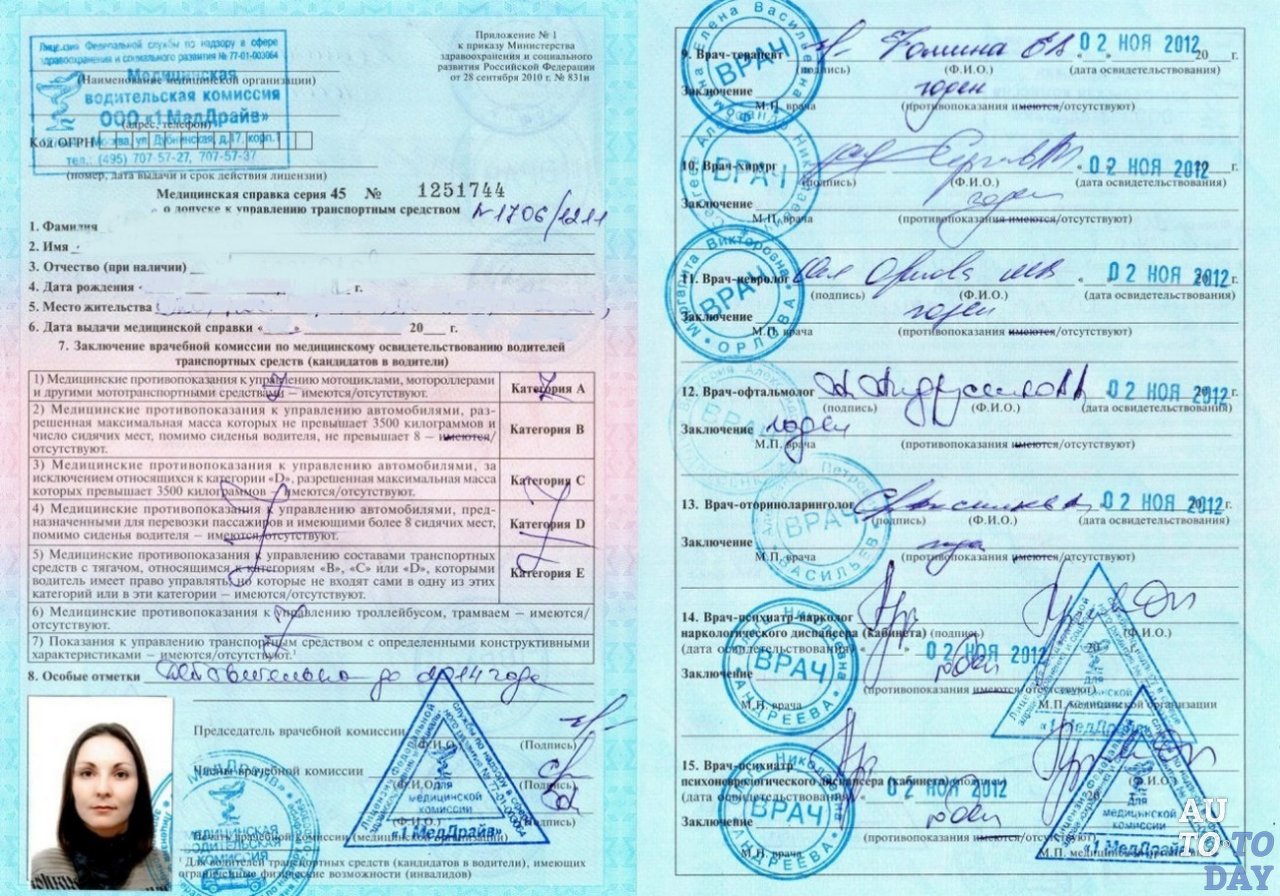 Лицензия Федеральной службы по надзору в сфере
здравоохранения и социального развития № 77-01-003064
(Наименование медицинской организации)
Медицинская
водительская комиссия
ООО «1 МедДрайв»
(адрес, телефон)
Код ОГРН Москва, ул. Дубнинская, д.17, корп.1
тел.: (495) 707-57-27, 707-57-37
(номер, дата выдачи и срок действия лицензии)
Приложение № 1
к приказу Министерства
здравоохранения и социального
развития Российской Федерации
от 28 сентября 2010 г. № 831н
Медицинская справка серия 45 № 1251744
о допуске к управлению транспортным средством №1706/1211
1. Фамилия
2. Имя
3. Отчество (при наличии)
4. Дата рождения г.
5. Место жительства
6. Дата выдачи медицинской справки « » 20 г.
7. Заключение врачебной комиссии по медицинскому освидетельствованию водителей
транспортных средств (кандидатов в водители)
1) Медицинские противопоказания к управлению мотоциклами, мотороллерами
и другими мототранспортными средствами – имеются/отсутствуют.
Категория А
2) Медицинские противопоказания к управлению автомобилями, раз-
решенная максимальная масса которых не превышает 3500 килограммов и
число сидячих мест, помимо сиденья водителя, не превышает 8 – имеются/
отсутствуют.
Категория В
3) Медицинские противопоказания к управлению автомобилями, за
исключением относящихся к категории «D», разрешенная максимальная масса
которых превышает 3500 килограммов – имеются/отсутствуют.
Категория С
4) Медицинские противопоказания к управлению автомобилями, пред-
назначенными для перевозки пассажиров и имеющими более 8 сидячих мест,
помимо сиденья водителя – имеются/отсутствуют.
Категория D
5) Медицинские противопоказания к управлению составами транспортных
средств с тягачом, относящимся к категориям «В», «С» или «D», которыми
водитель имеет право управлять, но которые не входят сами в одну из этих
категорий или в эти категории – имеются/отсутствуют.
Категория Е
6) Медицинские противопоказания к управлению троллейбусом, трамваем – имеются/
отсутствуют.
7) Показания к управлению транспортным средством с определенными конструктивными
характеристиками – имеются/отсутствуют.¹
8. Особые отметки действительно до 2014 года
Председатель врачебной комиссии
(Ф.И.О.) (Подпись)
Члены врачебной комиссии
(Ф.И.О.) (Подпись)
(Ф.И.О.) (Подпись)
Печать врачебной комиссии (медицинской организации)
¹ Для водителей транспортных средств (кандидатов в водители), имеющих
ограниченные физические возможности (инвалидов)
МедДрайв
МЕДИЦИНСКАЯ
ВОДИТЕЛЬСКАЯ
КОМИССИЯ
для
медицинской
комиссии
«1 МедДрайв»
9. Врач-терапевт Фомина ЕВ 02 НОЯ 2012 20 г.
(подпись) (Ф.И.О.) (дата освидетельствования)
Заключение годен
М.П. врача (противопоказания имеются/отсутствуют)
ВРАЧ
10. Врач-хирург 02 НОЯ 2012 г.
(подпись) (Ф.И.О.) (дата освидетельствования)
Заключение годен
М.П. врача (противопоказания имеются/отсутствуют)
ВРАЧ
11. Врач-невролог Орлова МВ 02 НОЯ 2012 г.
(подпись) (Ф.И.О.) (дата освидетельствования)
Заключение годен
М.П. врача (противопоказания имеются/отсутствуют)
Маргарита Викторовна ОРЛОВА ВРАЧ
12. Врач-офтальмолог 02 НОЯ 2012 г.
(подпись) (Ф.И.О.) (дата освидетельствования)
Заключение годен
М.П. врача (противопоказания имеются/отсутствуют)
ВРАЧ
13. Врач-оториноларинголог 02 НОЯ 2012 г.
(подпись) (Ф.И.О.) (дата освидетельствования)
Заключение годен
М.П. врача (противопоказания имеются/отсутствуют)
ВРАЧ
14. Врач-психиатр-нарколог
наркологического диспансера (кабинета) (подпись) (Ф.И.О.)
(дата освидетельствования) 02 НОЯ 2012 20
Заключение годен
(противопоказания имеются/отсутствуют)
М.П. врача М.П. медицинской организации
Николаевна АНДРЕЕВА ВРАЧ
«1 МедДрайв»
15. Врач-психиатр
психоневрологического диспансера (кабинета) (подпись) (Ф.И.О.)
(дата освидетельствования) 02 НОЯ 2012 20
Заключение годен
(противопоказания имеются/отсутствуют)
М.П. врача М.П. медицинской организации
АНДРЕЕВА ВРАЧ
для
медицинской
комиссии
«1 МедДрайв»
AU
TO TO
DAY